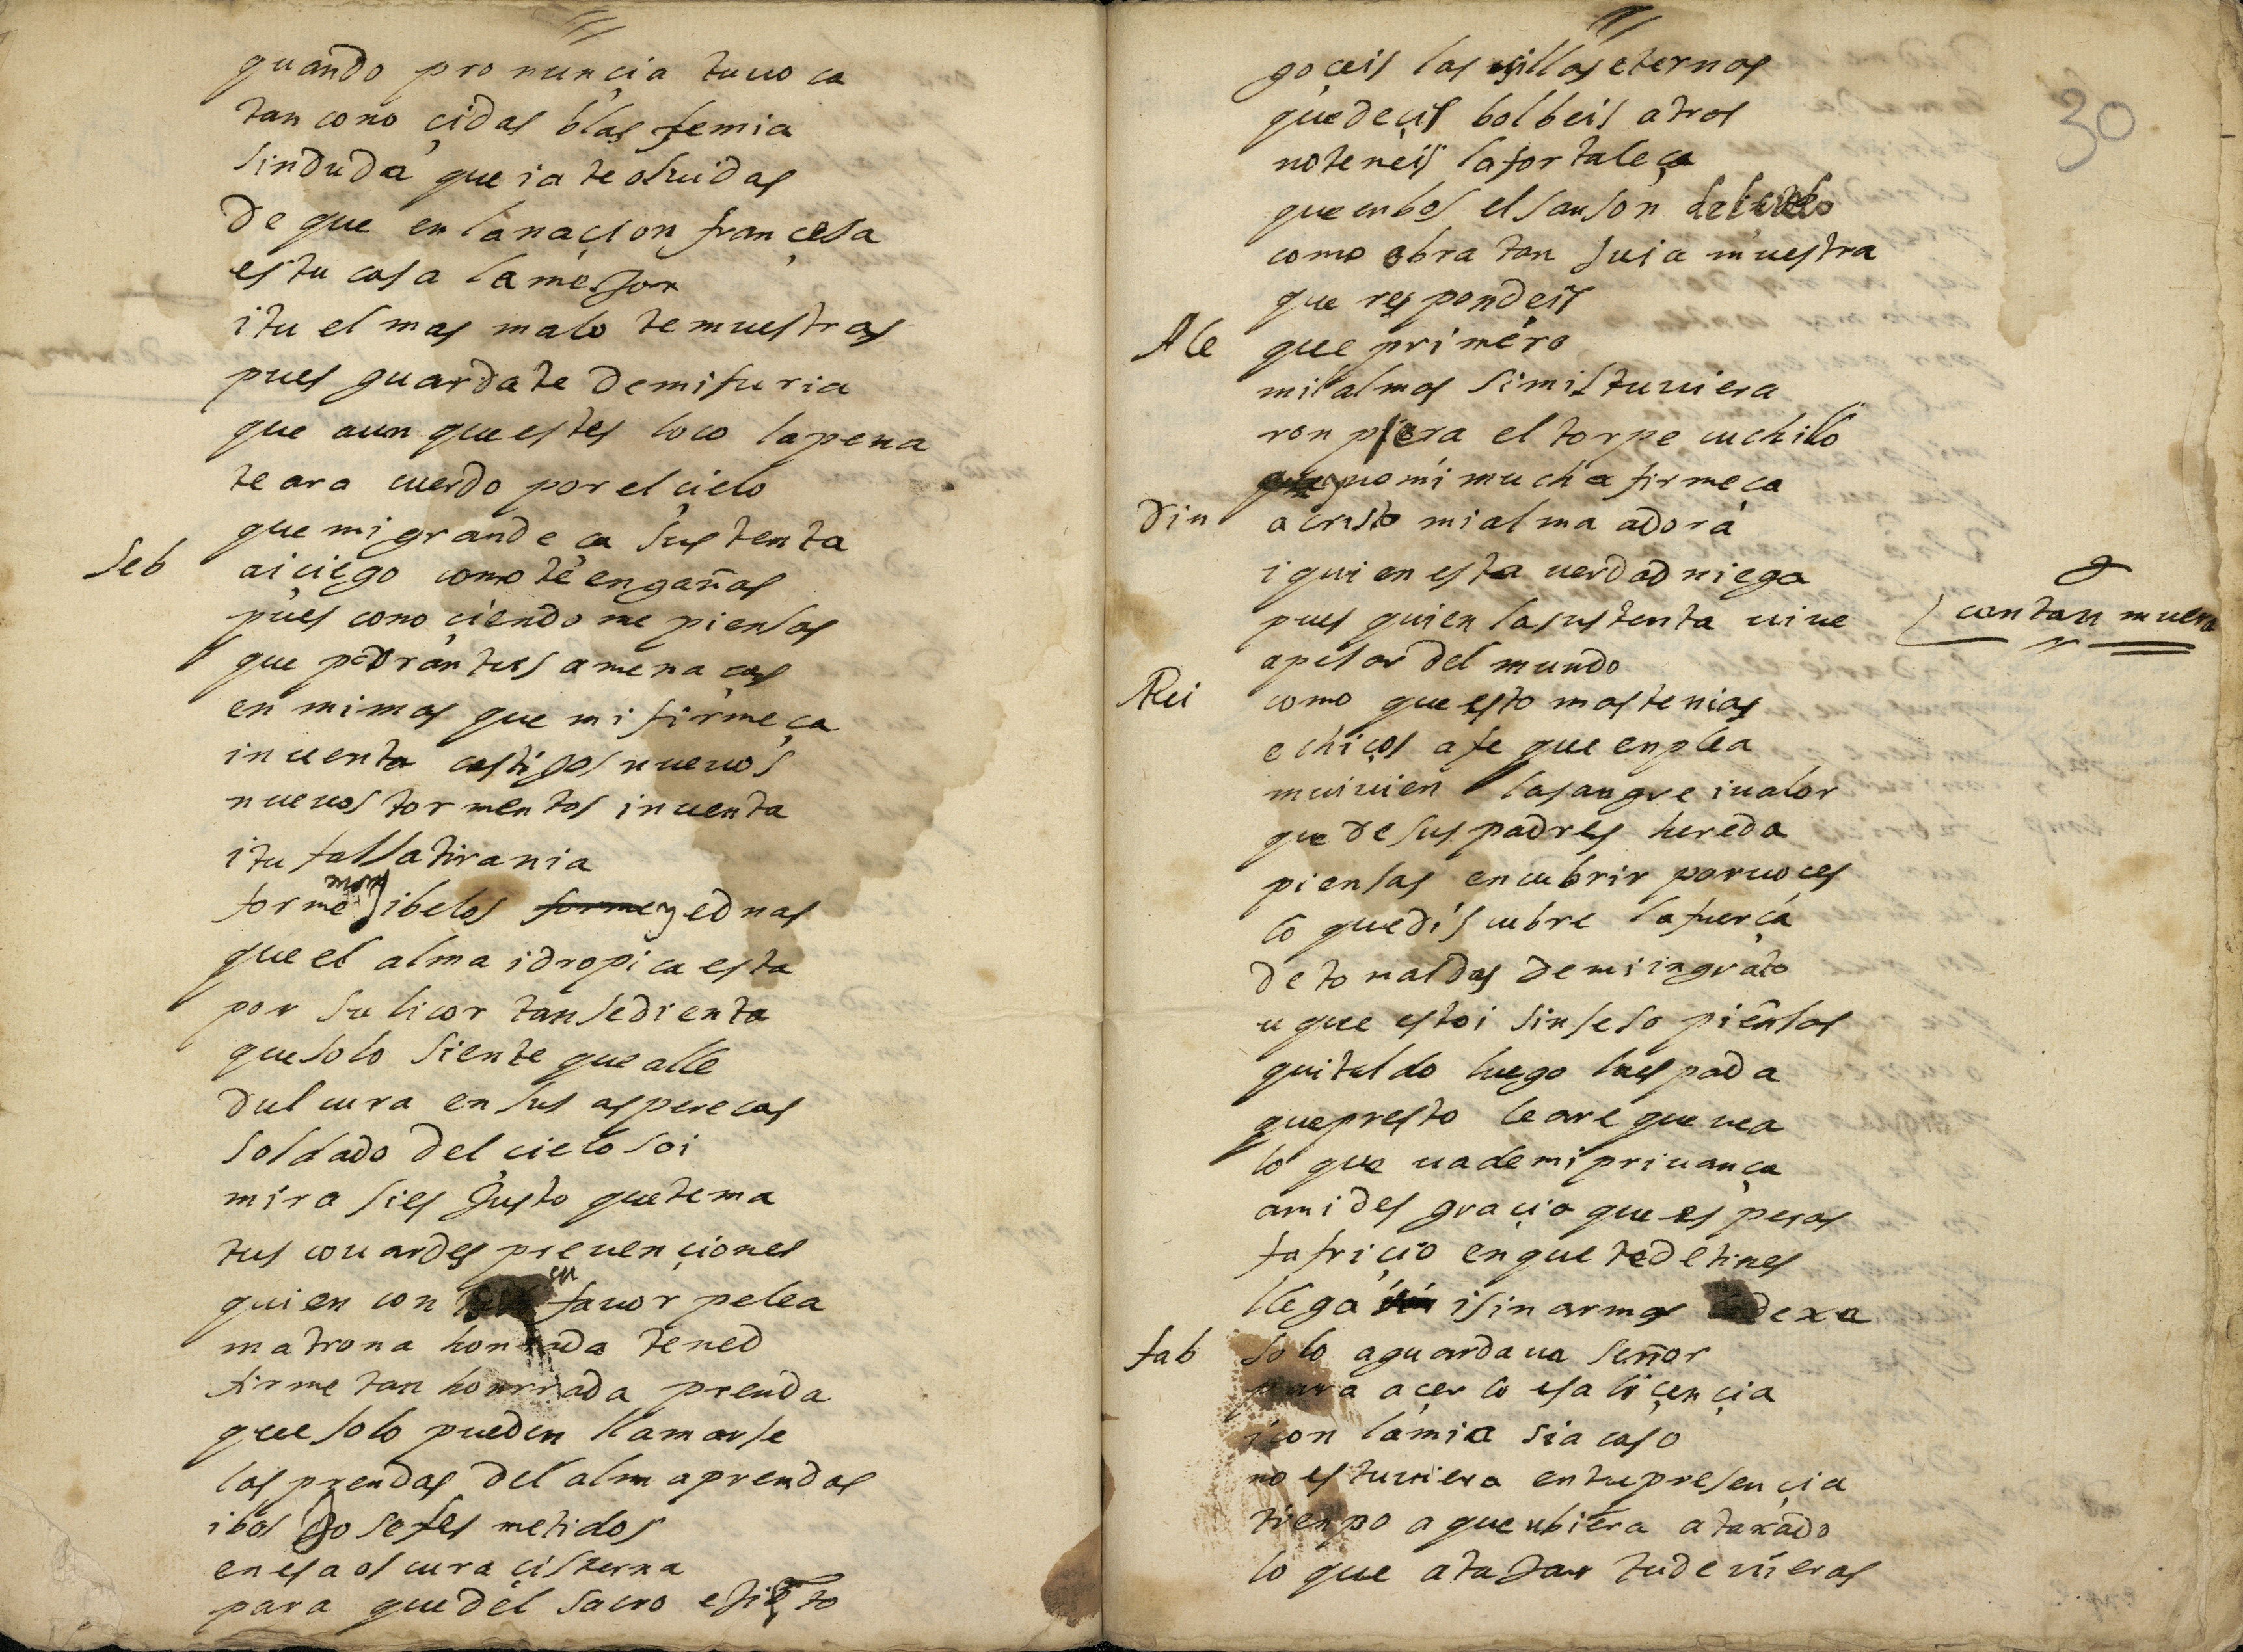 quando pronunçia tuuoca
tan cono çidas blasfemia
sinduda que ia te oluidas
De que en lanaçion françesa
es tu casa la mejor
i tu el mas malo temuestras
pues guardate Demifuria
que aun que estes loco lapena
te ara cuerdo por el çielo
que mi grandeça sustenta
Seb aiciego como te engañas
pues cono çiendo me piensas
que podran tus amenaças
en mimas que mi firmeça
inuenta castigos nueuos
nueuos tormentos inuenta
i tu falsatirania
forme mong ibelos ednas
que el alma idropica esta
por su licor tan sedienta
que solo siente que alle
Dulcura en sus asperecas
soldado Del çielo soi
mira sies Justo quetema
tus couardes preuençiones
quien con su fauor pelea
matrona honrrada tened
firme tan honrrada prenda
que solo pueden llamarse
las prendas Del alma prendas
ibos Josefes metidos
enesaoscura çisterna
para que del sacro ejipto
30
goçeis las sillas eternas
que deçis bolbeis atras
noteneis lafortaleça
que enbos el sanson del cielo
como obra tan suia muestra
que respondeis
Ale que primero
mil almas simil tuuiera
ronpiera el torpe cuchillo
que no mi mucha firmeça
Din a cristo mi alma adora
i qui en esta uerdad niega
pues quien lasustenta uiue
apesar del mundo
con tan muera
Rei como que esto mas tenias
echiços afe que enplea
mui uien lasangre iualor
que de sus padres hereda
piensas encubrir poruoces
lo quediscubre lafuerça
De to naldas De mi ingrato
u que estoi sinseso piensas
quitaldo luego laespada
quepresto le are que uea
lo que uademipriuança
amidesgraçia que esperas
fafriçio enque tedetines
llega isinarmas dexa
fab solo aguardaua señor
para açerlo esaliçençia
icon lamia siacaso
no estuuiera entupresençia
tienpo a que ubiera ataxado
lo que atajar tudeuieras